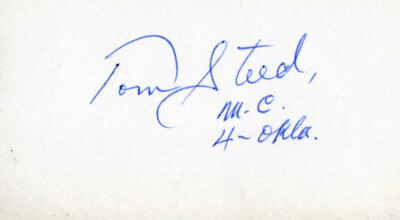 Tom Steed,
M.C.
4-Okla.